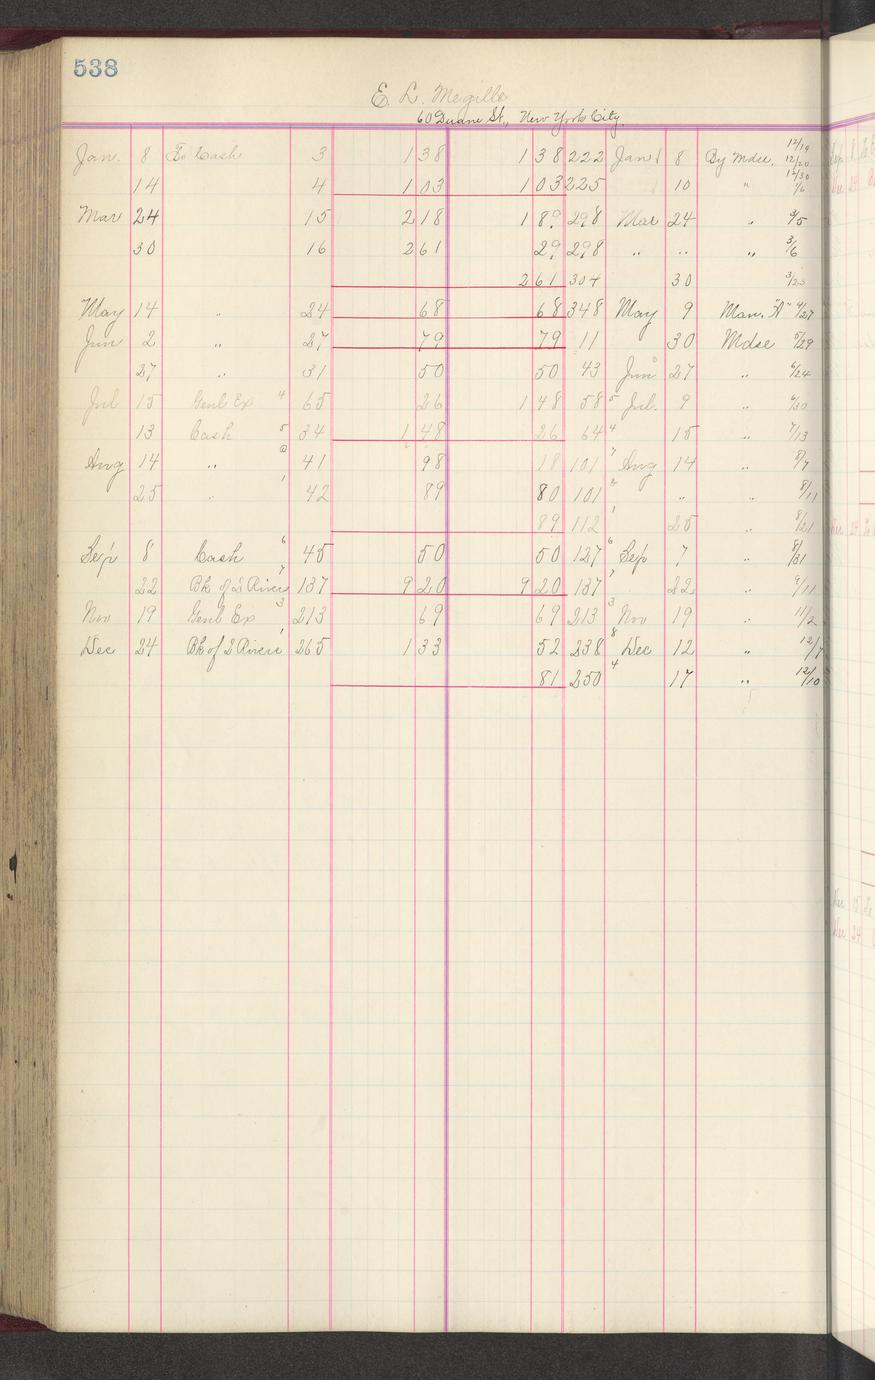 538
E. L. Megille
60 Duane St., New York City.
Jan. 8 To Cash 3 1 38 1 38 222 Jan 8 By Mdse. 12/19 12/20
14 4 1 03 1 03 225 10 " 12/30 1/6
Mar 24 15 2 18 1 89 298 Mar 24 " 3/5
30 16 2 61 29 298 " " " 3/6
2 61 304 30 3/23
May 14 " 24 68 68 348 May 9 Man. "A" 4/27
Jun 2 " 27 79 79 11 30 Mdse 5/29
27 " 31 50 50 43 Jun 27 " 6/24
Jul 15 Genl Ex 4 65 26 1 48 58 5 Jul. 9 " 6/30
13 Cash 5 34 1 48 26 64 4 15 " 7/13
Aug 14 " 41 98 18 101 7 Aug 14 " 8/7
25 " 1 42 89 80 101 2 " " 8/11
89 112 1 25 " 8/21
Sep 8 Cash 6 45 50 50 127 6 Sep 7 " 8/31
22 Bk of 2 Rivers 7 137 9 20 9 20 137 7 22 " 9/11
Nov 19 Genl Ex 3 213 69 69 213 3 Nov 19 " 11/2
Dec 24 Bk of 2 Rivers 1 265 1 33 52 238 8 Dec 12 " 12/7
81 250 4 17 " 12/10